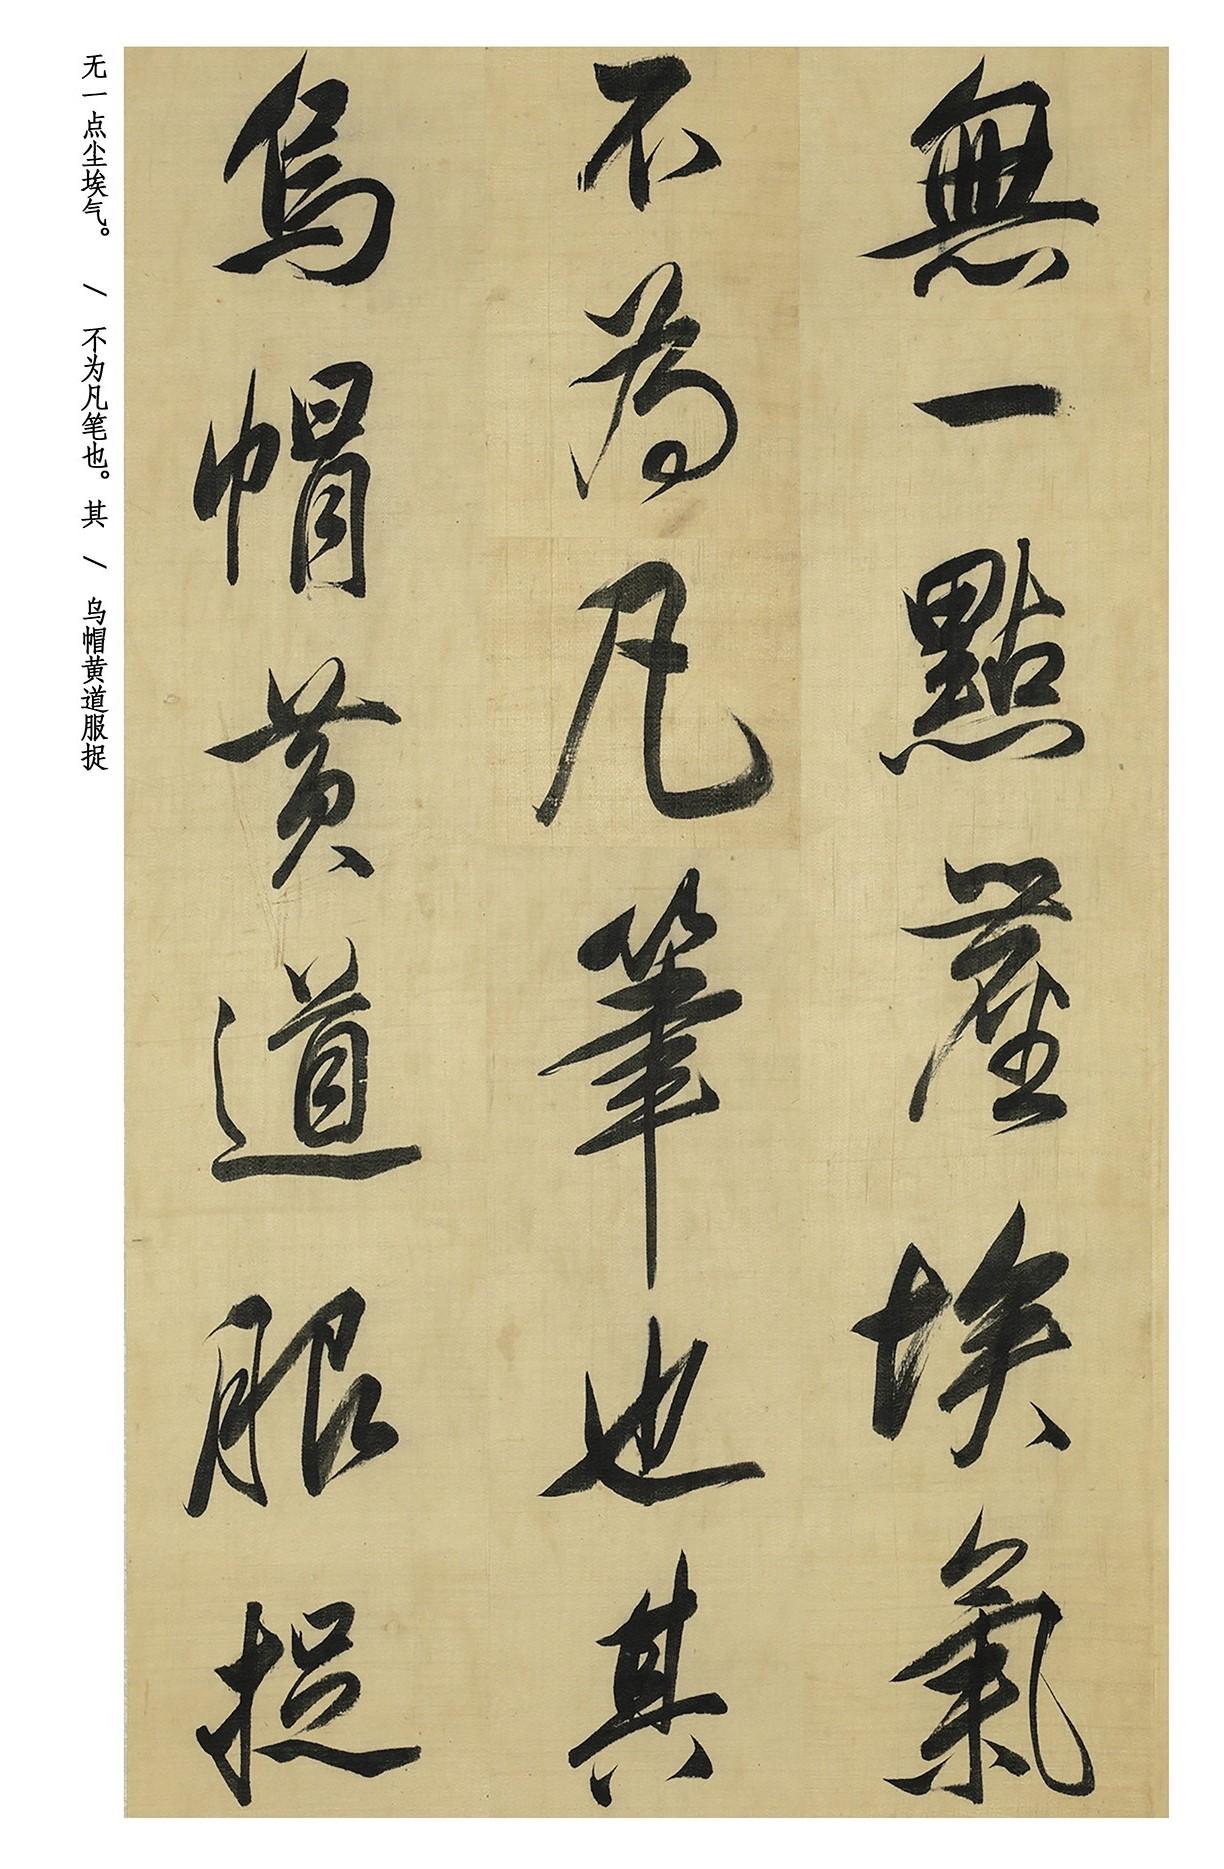 無一點塵埃氣
不為凡筆也其
烏帽黃道服捉
无一点尘埃气。 / 不为凡笔也。其 / 乌帽黄道服捉